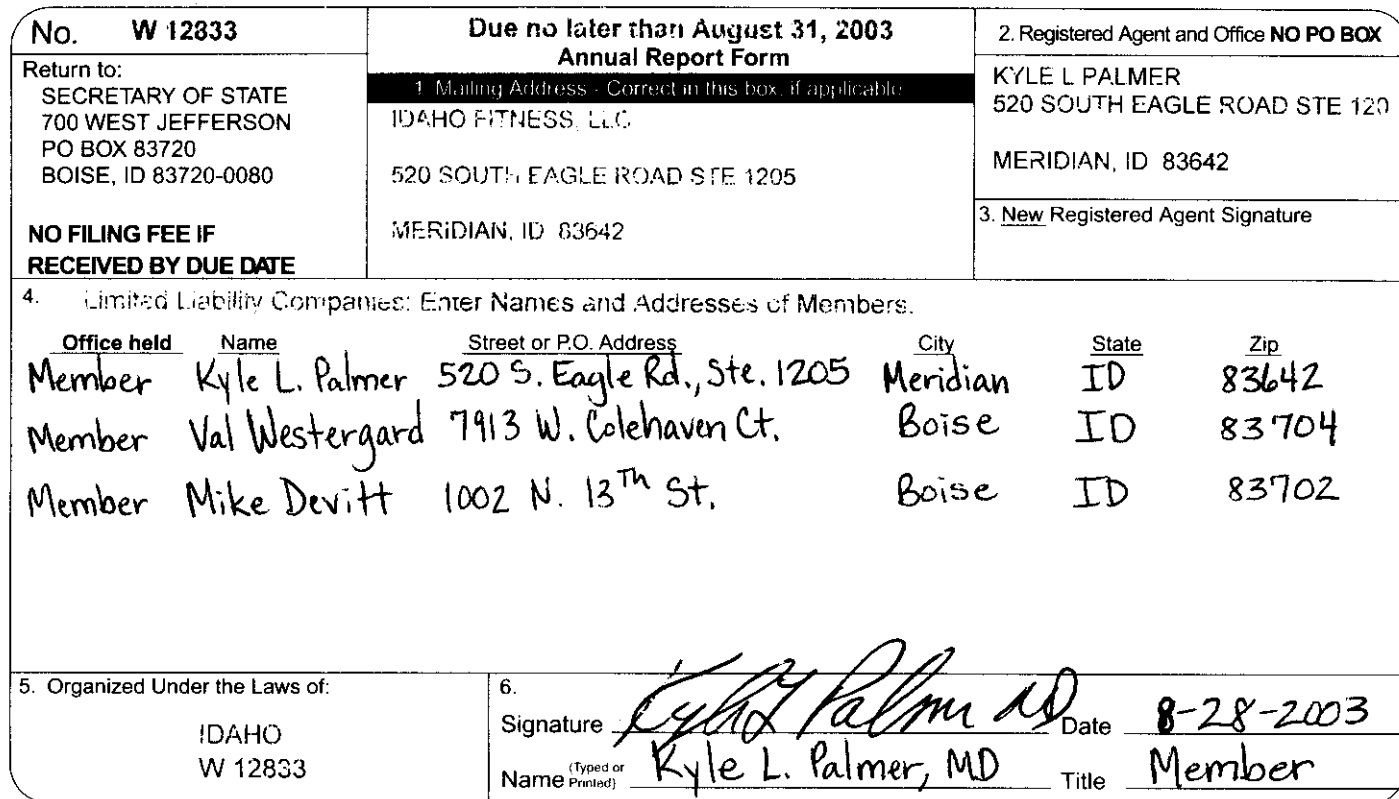 No. W 12833
Return to:
SECRETARY OF STATE
700 WEST JEFFERSON
PO BOX 83720
BOISE, ID 83720-0080
NO FILING FEE IF
RECEIVED BY DUE DATE
Due no later than August 31, 2003
Annual Report Form
1. Mailing Address - Correct in this box, if applicable
IDAHO FITNESS, LLC
520 SOUTH EAGLE ROAD STE 1205
MERIDIAN, ID 83642
2. Registered Agent and Office NO PO BOX
KYLE L PALMER
520 SOUTH EAGLE ROAD STE 120
MERIDIAN, ID 83642
3. New Registered Agent Signature
4. Limited Liability Companies: Enter Names and Addresses of Members.
Office held Name Street or P.O. Address City State Zip
Member Kyle L. Palmer 520 S. Eagle Rd., Ste. 1205 Meridian ID 83642
Member Val Westergard 7913 W. Colehaven Ct. Boise ID 83704
Member Mike Devitt 1002 N. 13Th St. Boise ID 83702
5. Organized Under the Laws of:
IDAHO
W 12833
6.
Signature Kyle L Palmer MD Date 8-28-2003
Name (Typed or Printed) Kyle L. Palmer, MD Title Member